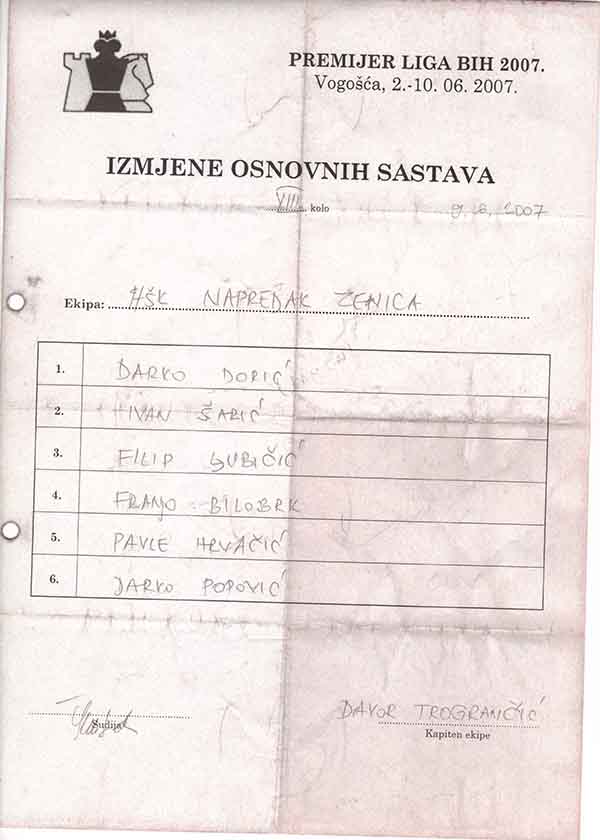 PREMIJER LIGA BIH 2007.
Vogošća, 2.-10. 06. 2007.
IZMJENE OSNOVNIH SASTAVA
VIII kolo 9.6.2007
Ekipa: HŠK NAPREDAK ZENICA
1. DARKO DORIĆ
2. IVAN ŠARIĆ
3. FILIP LJUBIČIĆ
4. FRANJO BILOBRK
5. PAVLE HRVAČIĆ
6. DARKO POPOVIĆ
Sudija
DAVOR TROGRANČIĆ
Kapiten ekipe